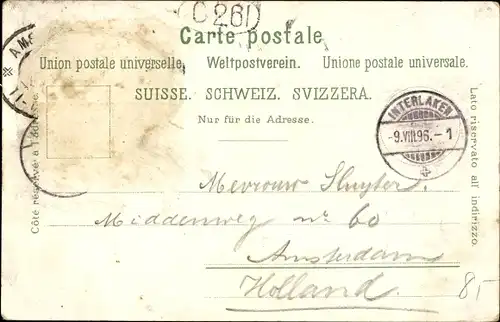 (C 26)
Carte postale
Union postale universelle. Weltpostverein. Unione postale universale.
SUISSE. SCHWEIZ. SVIZZERA.
Nur für die Adresse.
Côté réservé à l'adresse.
Lato riservato all' indirizzo.
INTERLAKEN
-9.VIII.96.-1
AMS
Mevrouw Sluyter.
Middenweg no 60
Amsterdam
Holland.
8,-